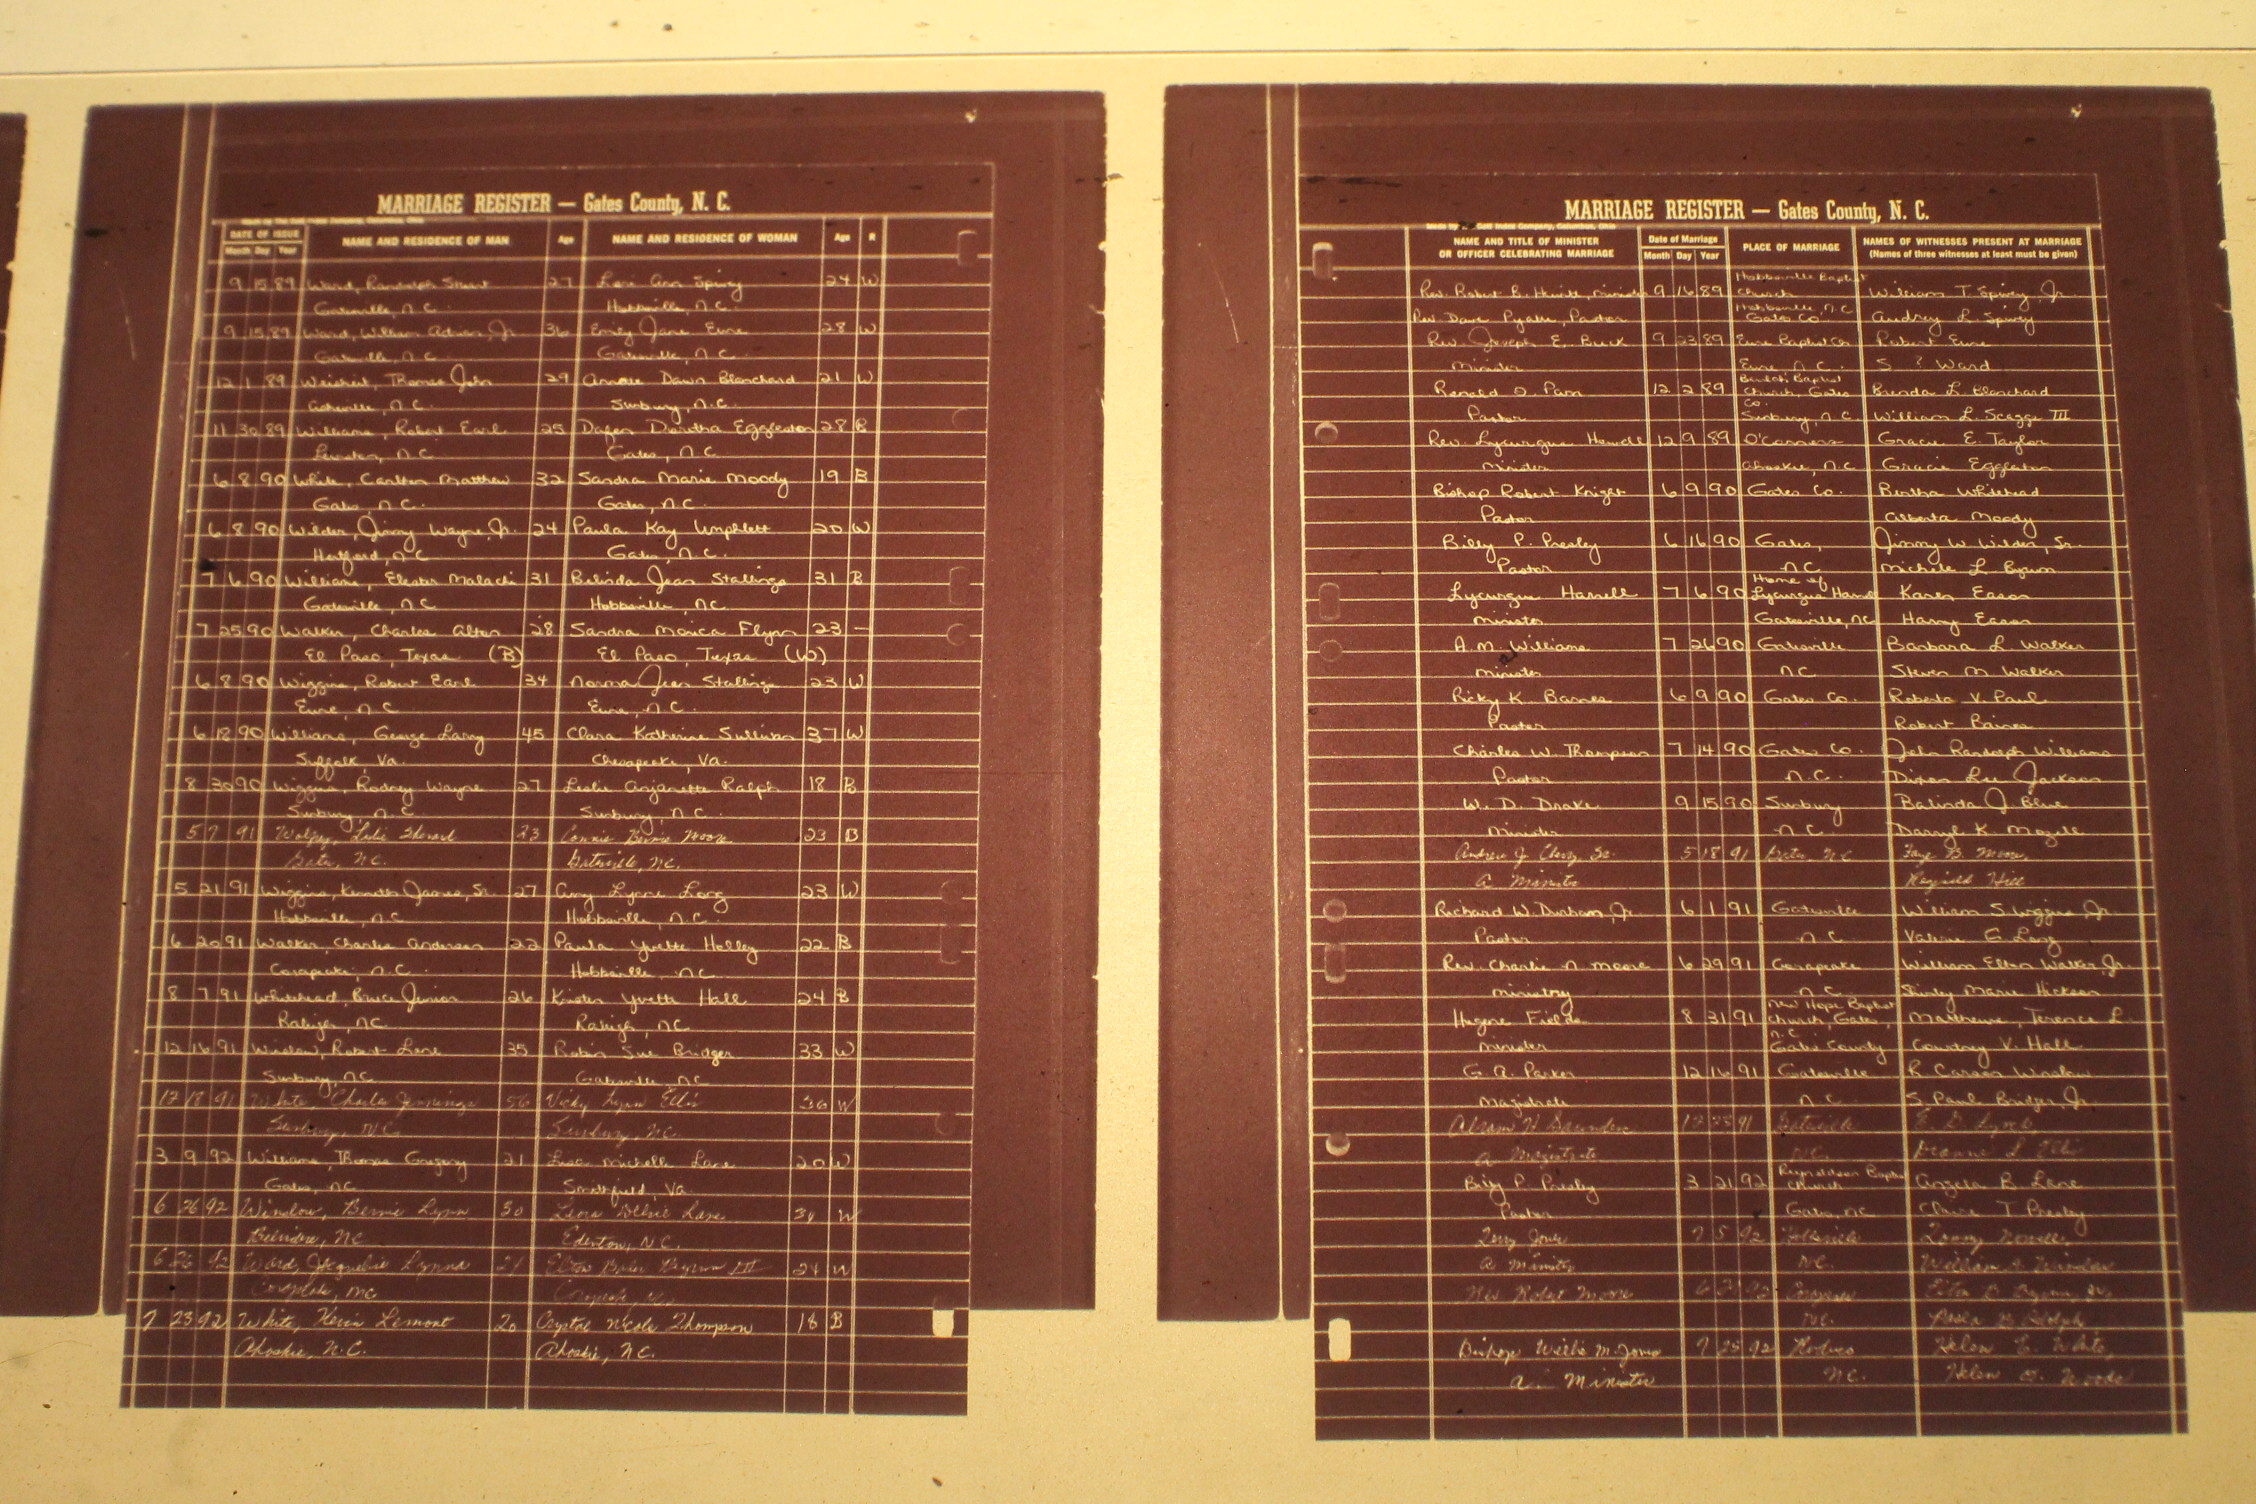 MARRIAGE REGISTER — Gates County, N. C.
DATE OF ISSUE
Month Day Year NAME AND RESIDENCE OF MAN Age NAME AND RESIDENCE OF WOMAN Age R
9 15 89 Ward, Randolph Stuart 27 Lori Ann Spivey 24 W
Gatesville, N.C. Hobbsville, N.C.
9 15 89 Ward, William Adrian, Jr. 36 Emily Jane Eure 28 W
Gatesville, N.C. Gatesville, N.C.
12 1 89 Thomas John 29 Dawn Blanchard 21 W
N.C. Sunbury, N.C.
11 30 89 Williams, Robert Earl 25 Eggleston 28 B
Lewiston, N.C. Gates, N.C.
6 8 90 White, Carlton Matthew 32 Sandra Marie Moody 19 B
Gates, N.C. Gates, N.C.
6 8 90 Wilder, Jimmy Wayne, Jr. 24 Paula Kay Umphlett 20 W
Hertford, N.C. Gates, N.C.
7 6 90 Williams, Malachi 31 Belinda Jean Stallings 31 B
Gatesville, N.C. Hobbsville, N.C.
7 25 90 Walker, Charles Alton 28 Sandra Monica Flynn 23 —
El Paso, Texas (B) El Paso, Texas (W)
6 8 90 Wiggins, Robert Earl 34 Norma Jean Stallings 23 W
Eure, N.C. Eure, N.C.
6 12 90 Williams, George Larry 45 Clara Katherine Sullivan 37 W
Suffolk, Va. Chesapeake, Va.
8 30 90 Wiggins, Rodney Wayne 27 Leslie Anjanette Ralph 18 B
Sunbury, N.C. Sunbury, N.C.
5 7 91 23 Connie Moore 23 B
Gates, N.C. Gatesville, N.C.
5 21 91 Wiggins, Kenneth James, Sr. 27 Amy Lynne Long 23 W
Hobbsville, N.C. Hobbsville, N.C.
6 20 91 Walker, Charlie Anderson 22 Paula Yvette Holley 22 B
Corapeake, N.C. Hobbsville, N.C.
8 7 91 Whitehead, Bruce Junior 26 Kirsten Yvette Hall 24 B
Raleigh, NC Raleigh, NC
12 16 91 Winslow, Robert Lane 35 Robin Sue Bridger 33 W
Sunbury, NC Gatesville NC
12 18 91 White, Charles Jennings 56 Vicky Lynn Ellis 36 W
Sunbury, N.C. Sunbury, N.C.
3 9 92 Williams, Thomas Gregory 21 Lisa Michelle Lane 20 W
Gates, NC Smithfield, Va
6 26 92 Winslow, Bernie Lynn 30 Lane 34 W
Belvidere, NC Edenton, N.C.
6 26 92 Ward, Jacqueline 24 W
Corapeake, NC Corapeake, N.C.
7 23 92 White, Kevin Lemont 20 Crystal Nicole Thompson 18 B
Ahoskie, N.C. Ahoskie, N.C.
MARRIAGE REGISTER — Gates County, N. C.
Made by The Cott Index Company, Columbus, Ohio
NAME AND TITLE OF MINISTER Date of Marriage PLACE OF MARRIAGE NAMES OF WITNESSES PRESENT AT MARRIAGE
OR OFFICER CELEBRATING MARRIAGE Month Day Year (Names of three witnesses at least must be given)
Hobbsville Baptist
Rev. Robert B. minister 9 16 89 Church William T. Spivey, Jr.
Hobbsville, N.C.
Rev. Dave Pyatte, Pastor Gates Co Audrey L. Spivey
Rev. Joseph E. Buck 9 23 89 Eure Baptist Ch Robert Eure
Minister Eure, N.C. S ? Ward
Baptist
Ronald 12 2 89 Church, Gates Brenda L. Blanchard
Co.
Pastor Sunbury, N.C. William L. Scaggs III
Rev. Lycurgus 12 9 89 O'Connors Gracie E. Taylor
Minister Ahoskie, N.C. Gracie Eggleston
Bishop Robert Knight 6 9 90 Gates Co. Bertha Whitehead
Pastor Alberta Moody
Billy P. Presley 6 16 90 Gates, Jimmy W. Wilder, Sr.
Pastor NC Michele L. Byrum
Home of
Lycurgus Harrell 7 6 90 Lycurgus Karen Eason
Minister Gatesville, NC Harry Eason
A. M. Williams 7 26 90 Gatesville Barbara L. Walker
Minister NC Steven M. Walker
Ricky K. Barnes 6 9 90 Gates Co. Roberta V. Paul
Pastor Robert Raines
Charles W. Thompson 7 14 90 Gates Co. John Randolph Williams
Pastor N.C. Dixon Lee Jackson
W. D. Drake 9 15 90 Sunbury Balinda J. Blue
Minister N.C. Darryl K. Mozell
Andrew J. Cherry, Sr. 5 18 91 Gates, NC Faye B. Moore,
a Minister Reginald Hill
Richard W. Durham, Jr. 6 1 91 Gatesville William S. Wiggins, Jr.
Pastor N.C. Valerie G. Long
Rev. Charlie N Moore 6 29 91 Corapeake William Elton Walker, Jr.
ministry N.C. Shirley Marie Hickson
New Hope Baptist
Fields 8 31 91 Church, Gates, Matthews, Terence L.
N.C.
Minister Gates County Courtney V. Hall
G. A. Parker 12 16 91 Gatesville R. Carson Winslow
Magistrate N.C. S. Paul Bridger, Jr.
Abram H Saunders 12 23 91 Gatesville E. D. Lynch
a Magistrate NC. L Ellis
Reynoldson Baptist
Billy P. Presley 3 21 92 Church Angela R. Lane
Pastor Gates, NC Claire T. Presley
Terry Jones 7 5 92 Hobbsville
a Minister NC. William A. Winslow
Rev Robert Moore 6 92 Corapeake
NC.
Bishop Willie M. Jones 7 25 92 Roduco Helen E. White,
a. Minister NC. Helen Woods